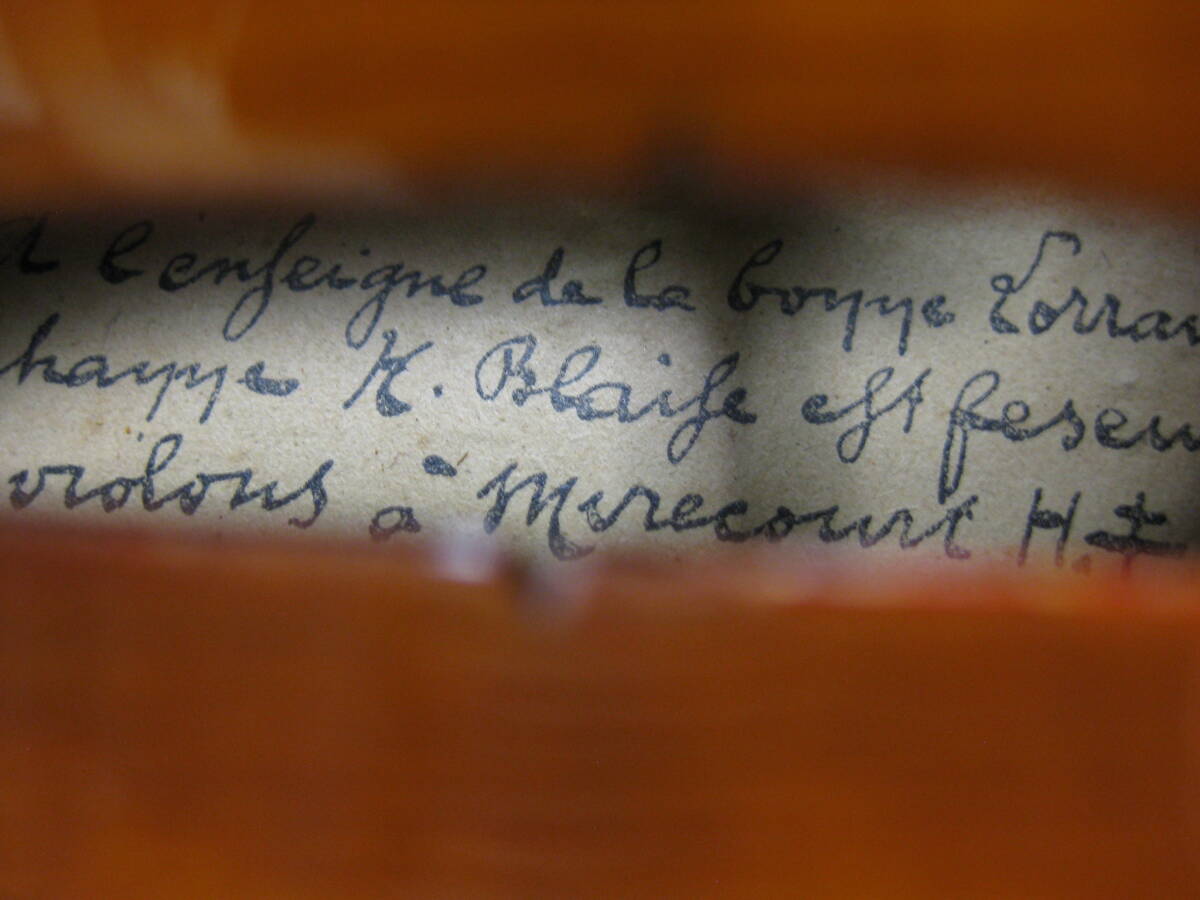 A l'enſeigne de la bonne Lorrai
hanne Blaiſe eſt feseu
violons à Mirecourt